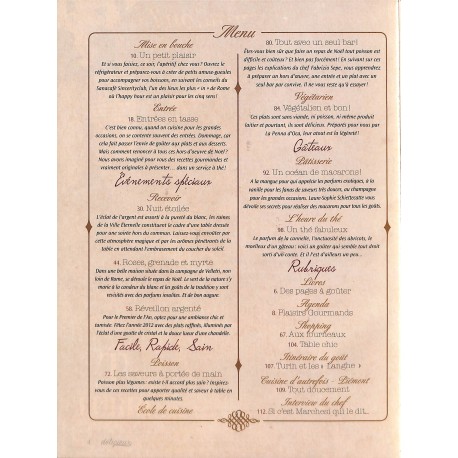 Menu
Mise en bouche
10. Un petit plaisir
Et si vous faisiez, ce soir, l'apéritif chez vous? Ouvrez le
réfrigérateur et préparez-vous à créer de petits amuse-gueule
pour accompagner vos boissons, en suivant les conseils du
l'un des lieux les plus « in » de Rome
où l'happy hour est un plaisir pour les cinq sens!
Entrée
18. Entrées en tasse
C'est bien connu, quand on cuisine pour les grandes
occasions, on se contente souvent des entrées. Dommage, car
cela fait passer l'envie de goûter aux plats et aux desserts.
Mais comment renoncer à tous ces hors d'œuvre de Noël?
Nous avons imaginé pour vous des recettes gourmandes et
vraiment originales à présenter... dans un service à thé!
Évènements spéciaux
Recevoir
30. Nuit étoilée
L'éclat de l'argent est assorti à la pureté du blanc, les ruines
de la Ville Éternelle constituent le cadre d'une table dressée
pour une soirée hors du commun. Laissez-vous envoûter par
cette atmosphère magique et par les arômes pénétrants de
la table en attendant l'embrasement du coucher du soleil.
44. Roses, grenade et myrte
Dans une belle maison située dans la campagne de Velletri, non
loin de Rome, se déroule le repas de Noël. Le vert de la nature s'y
marie à la couleur du blanc et les goûts de la tradition y sont
revisités avec des parfums insolites. Et de bon augure.
58. Réveillon argenté
Pour le Premier de l'An, optez pour une ambiance chic et
tamisée. Fêtez l'année 2012 avec des plats raffinés, illuminés par
l'éclat d'une goutte de cristal et la douce lueur d'une chandelle.
Facile, Rapide, Sain
Poisson
72. Les saveurs à portée de main
Poisson plus légumes: existe-t-il accord plus sain? Inspirez-
vous de ces recettes pour apporter qualité et saveur à table en
quelques minutes.
Ecole de cuisine
80. Tout avec un seul bar!
Êtes-vous bien sûr que faire un repas de Noël tout poisson est
difficile et coûteux? Et bien pas forcément! En suivant sur ces
pages les explications du chef Fabrizio Sepe, vous apprendrez
à préparer un hors d'œuvre, une entrée et un plat avec un
seul bar pour convive. Il ne vous reste qu'à essayer!
Végétarien
84. Végétalien et bon!
Ces plats sont sans viande, ni poisson, ni même produit
laitier et pourtant, ils sont délicieux. Préparés pour nous par
La Penna d'Oca, leur atout est la légèreté!
Gâteaux
Pâtisserie
92. Un océan de macarons!
A la mangue pour qui apprécie les parfums exotiques, à la
vanille pour les fanas de saveurs très douces, au champagne
pour les grandes occasions. Laure-Sophie Schiettecatte vous
dévoile ses secrets pour réaliser des macarons pour tous les goûts.
L'heure du thé
98. Un thé fabuleux
Le parfum de la cannelle, l'onctuosité des abricots, le
moelleux d'un gâteau: voici un goûter qui semble tout droit
sorti d'un conte. Et si l'est d'ailleurs un peu...
Rubriques
Livres
6. Des pages à goûter
Agenda
8. Plaisirs Gourmands
Shopping
67. Aux fourneaux
104. Table chic
Itinéraire du goût
107. Turin et les « Langhe »
Cuisine d'autrefois - Piémont
109. Tout doucement
Interview du chef
112. Si c'est Marchesi qui le dit...